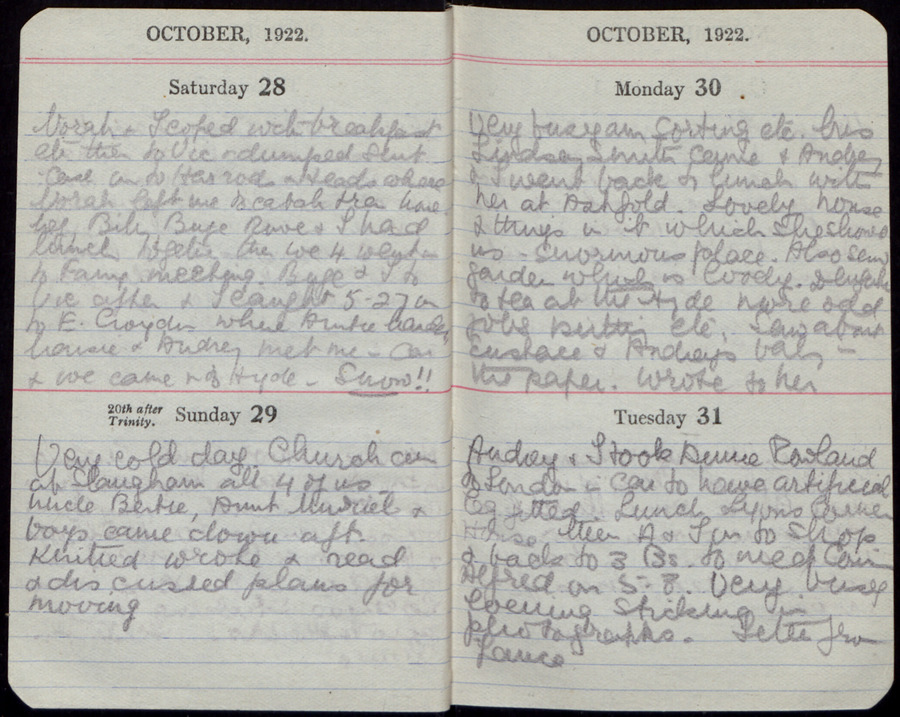 OCTOBER, 1922.
Saturday 28
Norah & I coped with breakfast
etc then to Vic & dumped suit
case on to Harrods & Heads where
Norah left me to catch train home
Bili, Buge & I had
lunch together then we 4 went
to meeting. Buge & I to
Vic after & I caught 5-27 on
to E. Croydon where Auntie
& Audrey met me - Car
& we came to Hyde - Snow!!
20th after
Trinity.
Sunday 29
Very cold day. Church am
at Slaugham all 4 of us
Uncle Bertie, Aunt Muriel &
boys came down aft.
Knitted wrote & read
& discussed plans for
moving
OCTOBER, 1922.
Monday 30
Very busy am sorting etc. Iris
Lindsay Smith came & Audrey
& I went back to lunch with
her at Ashfold. Lovely house
& things in it which she showed
us - enormous place. Also saw
garden which is lovely.
to tea at the Hyde more odd
jobs etc. Saw about
Eustace & Audrey's baby -
the paper. Wrote to her
Tuesday 31
Audrey & I took Rowland
to London in car to have artificial
leg fitted. Lunch Lyons Corner
House then A & I to Shop
& back to 3 Bs. to meet
Alfred on 5-8. Very busy
evening sticking in
photographs. Letter from
Lance